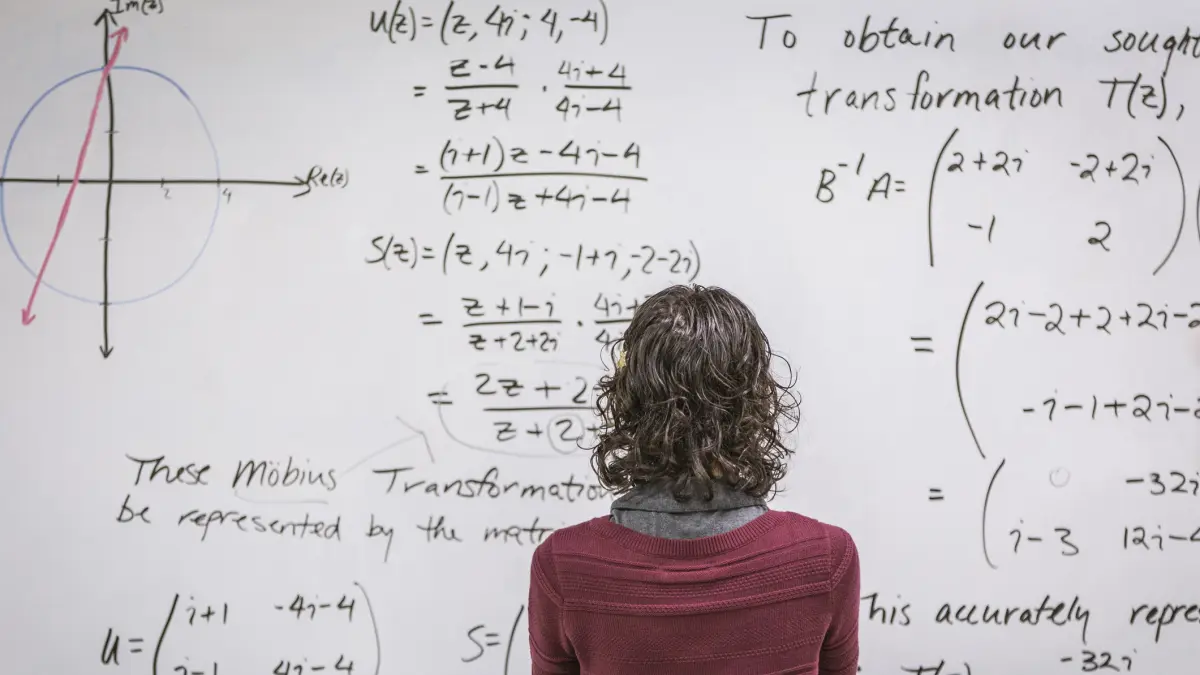 Im(z)
Re(z)
2
4
U(z)=(z, 4i; 4, -4)
= z-4/z+4 · 4i+4/4i-4
= (i+1)z-4i-4/(i-1)z+4i-4
S(z)=(z, 4i; -1+i, -2-2i)
= z+1-i/z+2+2i ·
= 2z+2/z+2
These Möbius Transformatio
be represented by the matri
U= (i+1 -4i-4
i-1 4i-4)
S= (
To obtain our sought
transformation T(z),
B⁻¹A= (2+2i -2+2i
-1 2)
= (2i-2+2+2i-2
-i-1+2i-
= ( -32i
i-3 12i-4
This accurately repre
-32i